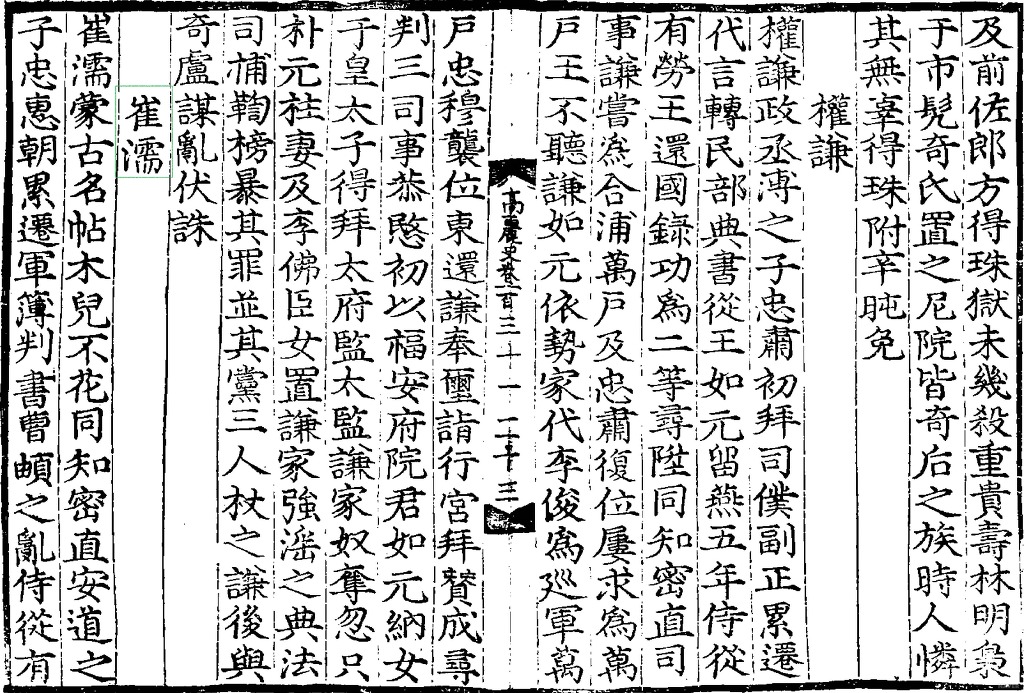 及前佐郎方得珠獄未幾殺重貴壽林明梟
于市髡奇氏置之尼院皆奇后之族時人憐
其無辜得珠附辛旽免
權謙
權謙政丞溥之子忠肅初拜司僕副正累遷
代言轉民部典書從王如元留燕五年侍從
有勞王還國錄功爲二等尋陞同知密直司
事謙嘗爲合浦萬戶及忠肅復位屢求爲萬
戶王不聽謙如元依勢家代李俊爲巡軍萬
高麗史卷一百三十一 二十三
戶忠穆襲位東還謙奉璽詣行宮拜贊成尋
判三司事恭愍初以福安府院君如元納女
于皇太子得拜太府監太監謙家奴奪忽只
朴元柱妻及李佛臣女置謙家強滛之典法
司捕鞫榜暴其罪並其黨三人杖之謙後與
奇盧謀亂伏誅
崔濡
崔濡蒙古名帖木兒不花同知密直安道之
子忠惠朝累遷軍簿判書曹頔之亂侍從有